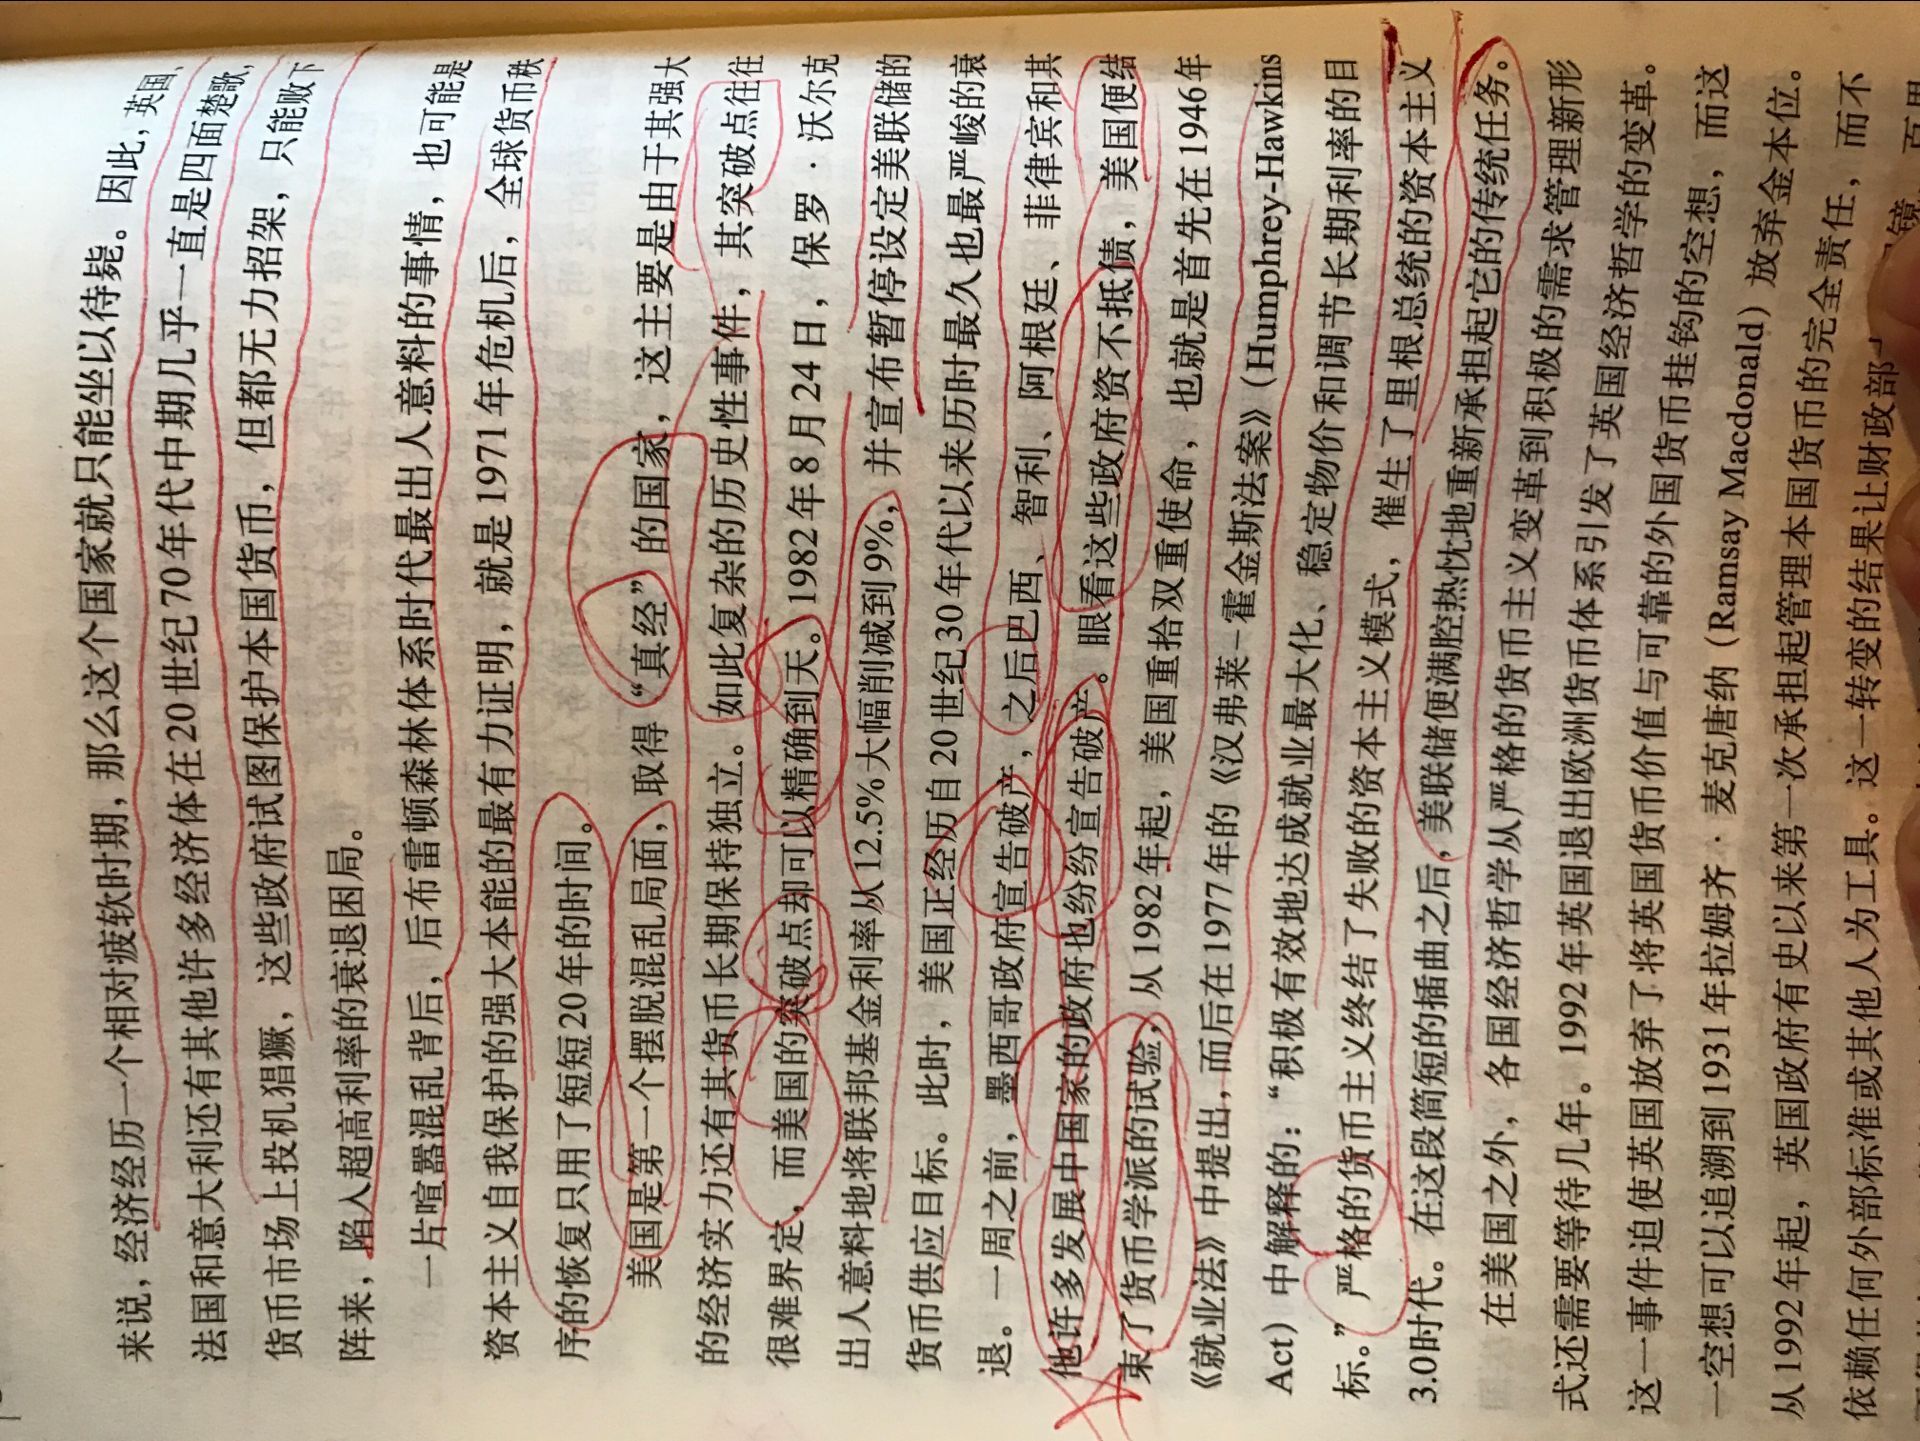 来说，经济经历一个相对疲软时期，那么这个国家就只能坐以待毙。因此，英国、
法国和意大利还有其他许多经济体在20世纪70年代中期几乎一直是四面楚歌，
货币市场上投机猖獗，这些政府试图保护本国货币，但都无力招架，只能败下
阵来，陷入超高利率的衰退困局。
一片喧嚣混乱背后，后布雷顿森林体系时代最出人意料的事情，也可能是
资本主义自我保护的强大本能的最有力证明，就是1971年危机后，全球货币秩
序的恢复只用了短短20年的时间。
美国是第一个摆脱混乱局面，取得“真经”的国家，这主要是由于其强大
的经济实力还有其货币长期保持独立。如此复杂的历史性事件，其突破点往往
很难界定，而美国的突破点却可以精确到天。1982年8月24日，保罗·沃尔克
出人意料地将联邦基金利率从12.5%大幅削减到9%，并宣布暂停设定美联储的
货币供应目标。此时，美国正经历自20世纪30年代以来历时最久也最严峻的衰
退。一周之前，墨西哥政府宣告破产，之后巴西、智利、阿根廷、菲律宾和其
他许多发展中国家的政府也纷纷宣告破产。眼看这些政府资不抵债，美国便结
束了货币学派的试验，从1982年起，美国重拾双重使命，也就是首先在1946年
《就业法》中提出，而后在1977年的《汉弗莱-霍金斯法案》（Humphrey-Hawkins
Act）中解释的：“积极有效地达成就业最大化、稳定物价和调节长期利率的目
标。”严格的货币主义终结了失败的资本主义模式，催生了里根总统的资本主义
3.0时代。在这段简短的插曲之后，美联储便满腔热忱地重新承担起它的传统任务。
在美国之外，各国经济哲学从严格的货币主义变革到积极的需求管理新形
式还需要等待几年。1992年英国退出欧洲货币体系引发了英国经济哲学的变革。
这一事件迫使英国放弃了将英国货币价值与可靠的外国货币挂钩的空想，而这
一空想可以追溯到1931年拉姆齐·麦克唐纳（Ramsay Macdonald）放弃金本位。
从1992年起，英国政府有史以来第一次承担起管理本国货币的完全责任，而不
依赖任何外部标准或其他人为工具。这一转变的结果让财政部